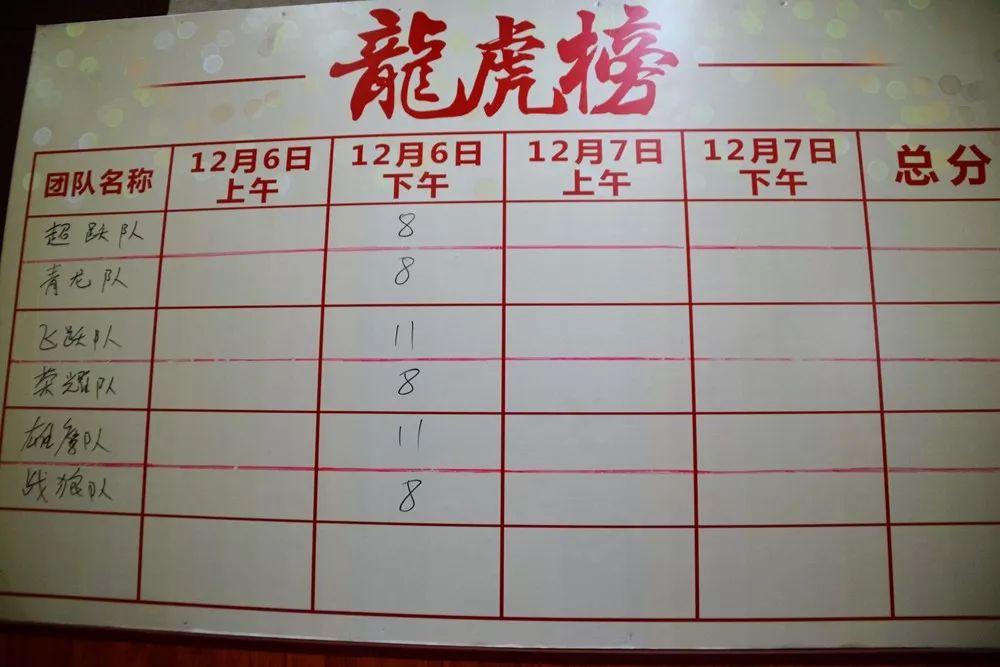 龍虎榜
团队名称 12月6日上午 12月6日下午 12月7日上午 12月7日下午 总分
超跃队 8
青龙队 8
飞跃队 11
荣耀队 8
雄鹰队 11
战狼队 8